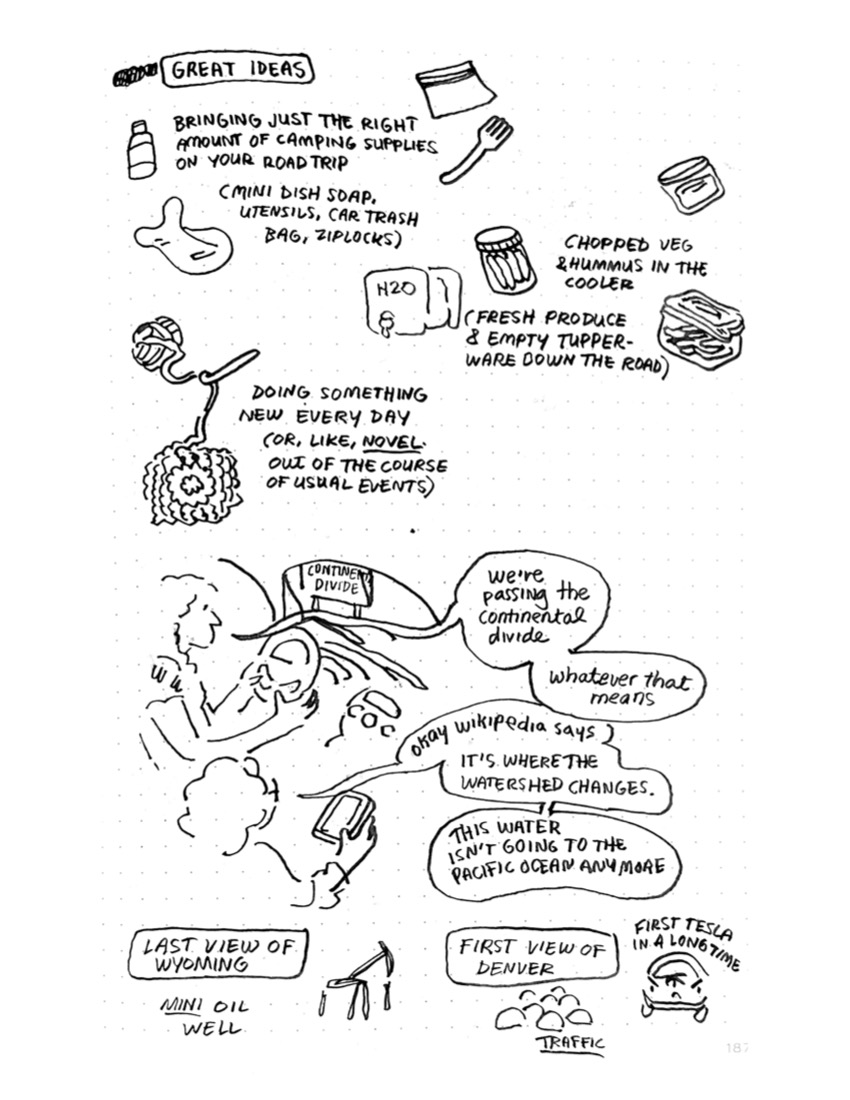 GREAT IDEAS
BRINGING JUST THE RIGHT
AMOUNT OF CAMPING SUPPLIES
ON YOUR ROAD TRIP
(MINI DISH SOAP,
UTENSILS, CAR TRASH
BAG, ZIPLOCKS)
CHOPPED VEG
& HUMMUS IN THE
COOLER
H2O
(FRESH PRODUCE
& EMPTY TUPPER-
WARE DOWN THE ROAD)
DOING SOMETHING
NEW EVERY DAY
(OR, LIKE, NOVEL.
OUT OF THE COURSE
OF USUAL EVENTS)
CONTINEN
DIVIDE
we're
passing the
continental
divide
whatever that
means
okay wikipedia says
IT'S WHERE THE
WATERSHED CHANGES.
THIS WATER
ISN'T GOING TO THE
PACIFIC OCEAN ANYMORE
LAST VIEW OF
WYOMING
MINI OIL
WELL
FIRST VIEW OF
DENVER
TRAFFIC
FIRST TESLA
IN A LONG TIME
187